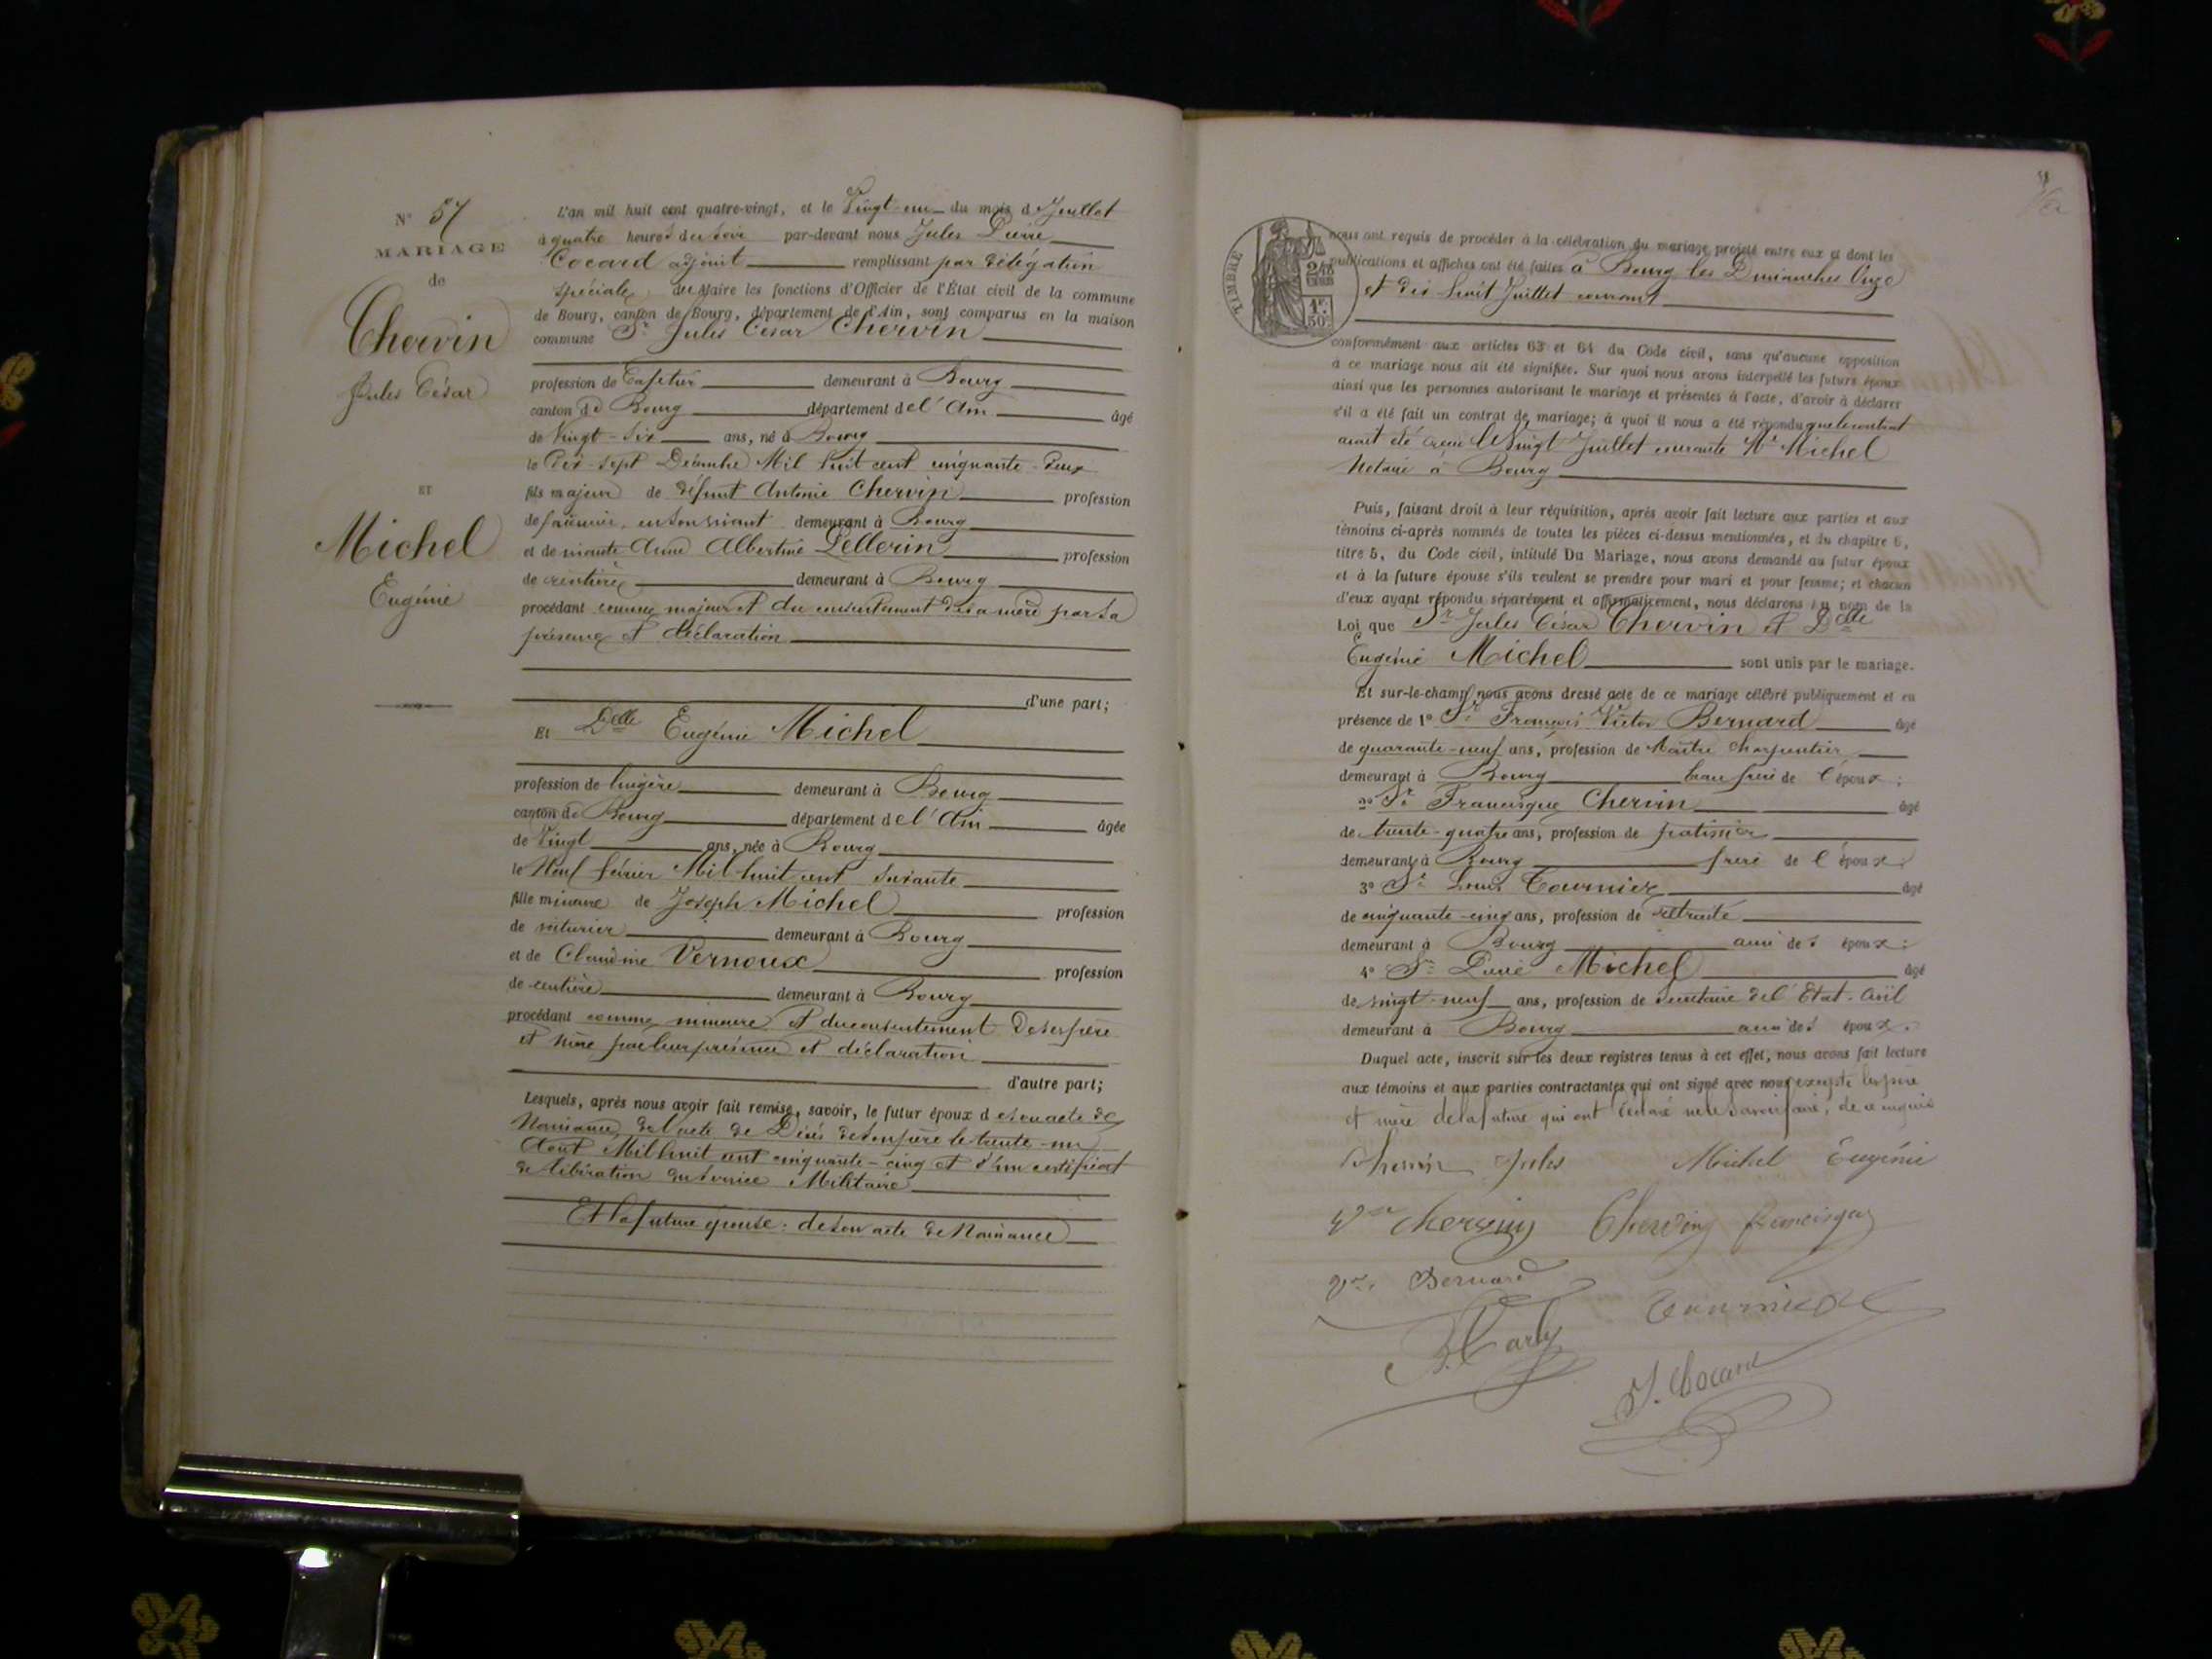 N° 57
MARIAGE
de
Chervin
Jules César
ET
Michel
Eugénie
L'an mil huit cent quatre-vingt, et le Vingt-un du mois d Juillet
à quatre heures du soir par-devant nous Jules Pierre
Cocard adjoint remplissant par délégation
spéciale du Maire les fonctions d'Officier de l'État civil de la commune
de Bourg, canton de Bourg, département de l'Ain, sont comparus en la maison
commune Sr Jules César Chervin
profession de Cafetier demeurant à Bourg
canton de Bourg département de l'Ain âgé
de Vingt-six ans, né à Bourg
le Dix-sept Décembre Mil huit cent cinquante-deux
fils majeur de défunt Antoine Chervin profession
de en son vivant demeurant à Bourg
et de vivante Anne Albertine Pellerin profession
de rentière demeurant à Bourg
procédant comme majeur et du consentement de sa mère par sa
présence et déclaration
d'une part;
Et Delle Eugénie Michel
profession de lingère demeurant à Bourg
canton de Bourg département de l'Ain âgée
de Vingt ans, née à Bourg
le Neuf février Mil huit cent soixante
fille mineure de Joseph Michel profession
de voiturier demeurant à Bourg
et de Claudine Vernoux profession
de rentière demeurant à Bourg
procédant comme mineure et du consentement de ses père
et mère par leur présence et déclaration
d'autre part;
Lesquels, après nous avoir fait remise, savoir, le futur époux de son acte de
Naissance, de l'acte de Décès de son père le trente-un
Août Mil huit cent cinquante-cinq et d'un certificat
de libération du service Militaire
Et la future épouse: de son acte de Naissance
TIMBRE
2/10
EN SUS
1F.
50c.
nous ont requis de procéder à la célébration du mariage projeté entre eux et dont les
publications et affiches ont été faites à Bourg les Dimanches Onze
et dix huit Juillet courant
conformément aux articles 63 et 64 du Code civil, sans qu'aucune opposition
à ce mariage nous ait été signifiée. Sur quoi nous avons interpellé les futurs époux
ainsi que les personnes autorisant le mariage et présentes à l'acte, d'avoir à déclarer
s'il a été fait un contrat de mariage; à quoi il nous a été répondu que le contrat
avait été reçu le Vingt Juillet courant Me Michel
Notaire à Bourg
Puis, faisant droit à leur réquisition, après avoir fait lecture aux parties et aux
témoins ci-après nommés de toutes les pièces ci-dessus mentionnées, et du chapitre 6,
titre 5, du Code civil, intitulé Du Mariage, nous avons demandé au futur époux
et à la future épouse s'ils veulent se prendre pour mari et pour femme; et chacun
d'eux ayant répondu séparément et affirmativement, nous déclarons au nom de la
Loi que Sr Jules César Chervin et Delle
Eugénie Michel sont unis par le mariage.
Et sur-le-champ nous avons dressé acte de ce mariage célébré publiquement et en
présence de 1° Sr François Victor Bernard âgé
de quarante-neuf ans, profession de Maître Charpentier
demeurant à Bourg beau frère de l'époux;
2° Sr Francisque Chervin âgé
de trente-quatre ans, profession de patissier
demeurant à Bourg frère de l'époux;
3° Sr Louis Tournier âgé
de cinquante-cinq ans, profession de retraité
demeurant à Bourg ami des époux;
4° Sr Michel âgé
de vingt-neuf ans, profession de Secrétaire de l'Etat-Civil
demeurant à Bourg ami des époux.
Duquel acte, inscrit sur les deux registres tenus à cet effet, nous avons fait lecture
aux témoins et aux parties contractantes qui ont signé avec nous excepté les père
et mère de la future qui ont déclaré ne le savoir faire, de ce enquis
Chervin Jules Michel Eugénie
Vve Chervin Chervin Francisque
Vor Bernard
Tournier
J. Cocard